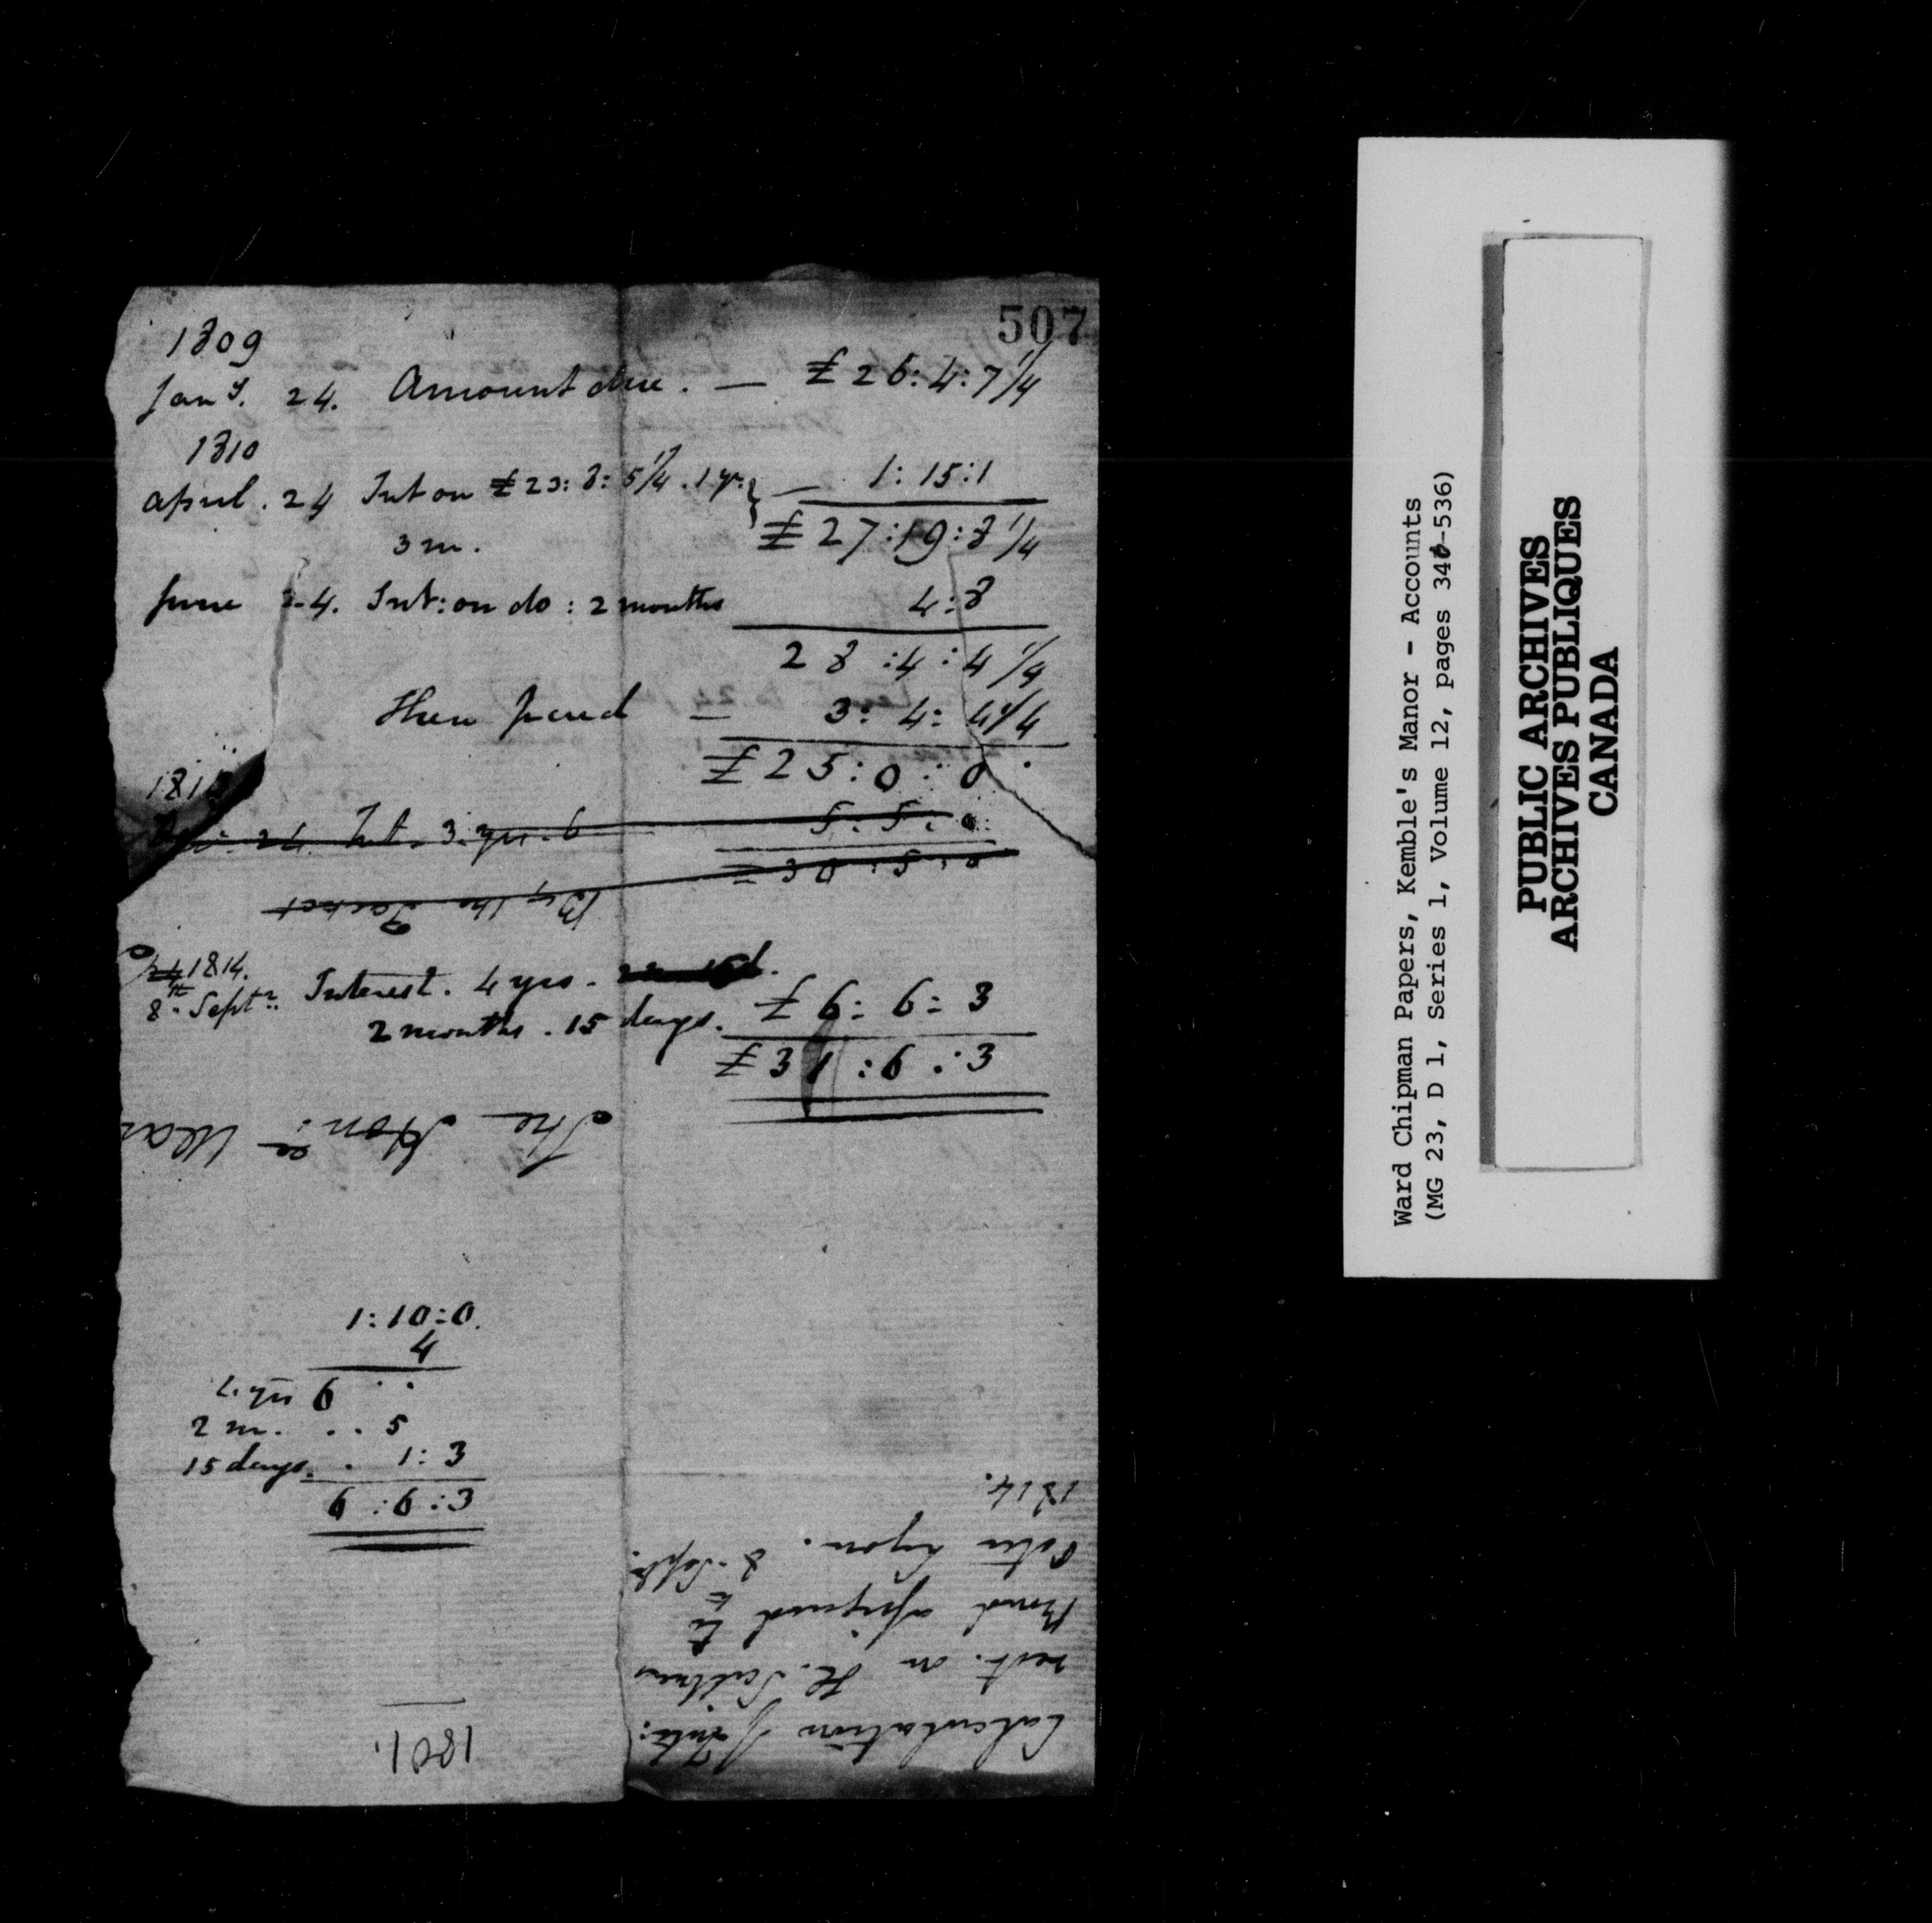 507
1809
Jany. 24. Amount due. — £26:4:7 1/4
1810
April. 24 Int on £23:8:5 1/4. 1 yr. } — 1:15:1
3 m. £27:19:8 1/4
June 24. Int: on do: 2 months 4:8
28:4:4 1/4
Then paid — 3:4:4 1/4
£25:0:0.
181
24 Int. 3 yrs. 6 5:5:0
£30:5:0
By the Packet
1814.
8th Septr. Interest. 4 yrs.
2 months. 15 days. £6:6:3
£31:6:3
The Honble War
1:10:0.
4
4 yrs 6 . .
2 m. . . 5
15 days. . 1:3
6:6:3
1801.
Calculation of Inte:
rest. on H.
Bond assigned to
Peter Lyon. 8 Septr.
1814.
Ward Chipman Papers, Kemble's Manor - Accounts
(MG 23, D 1, Series 1, Volume 12, pages 346-536)
PUBLIC ARCHIVES
ARCHIVES PUBLIQUES
CANADA